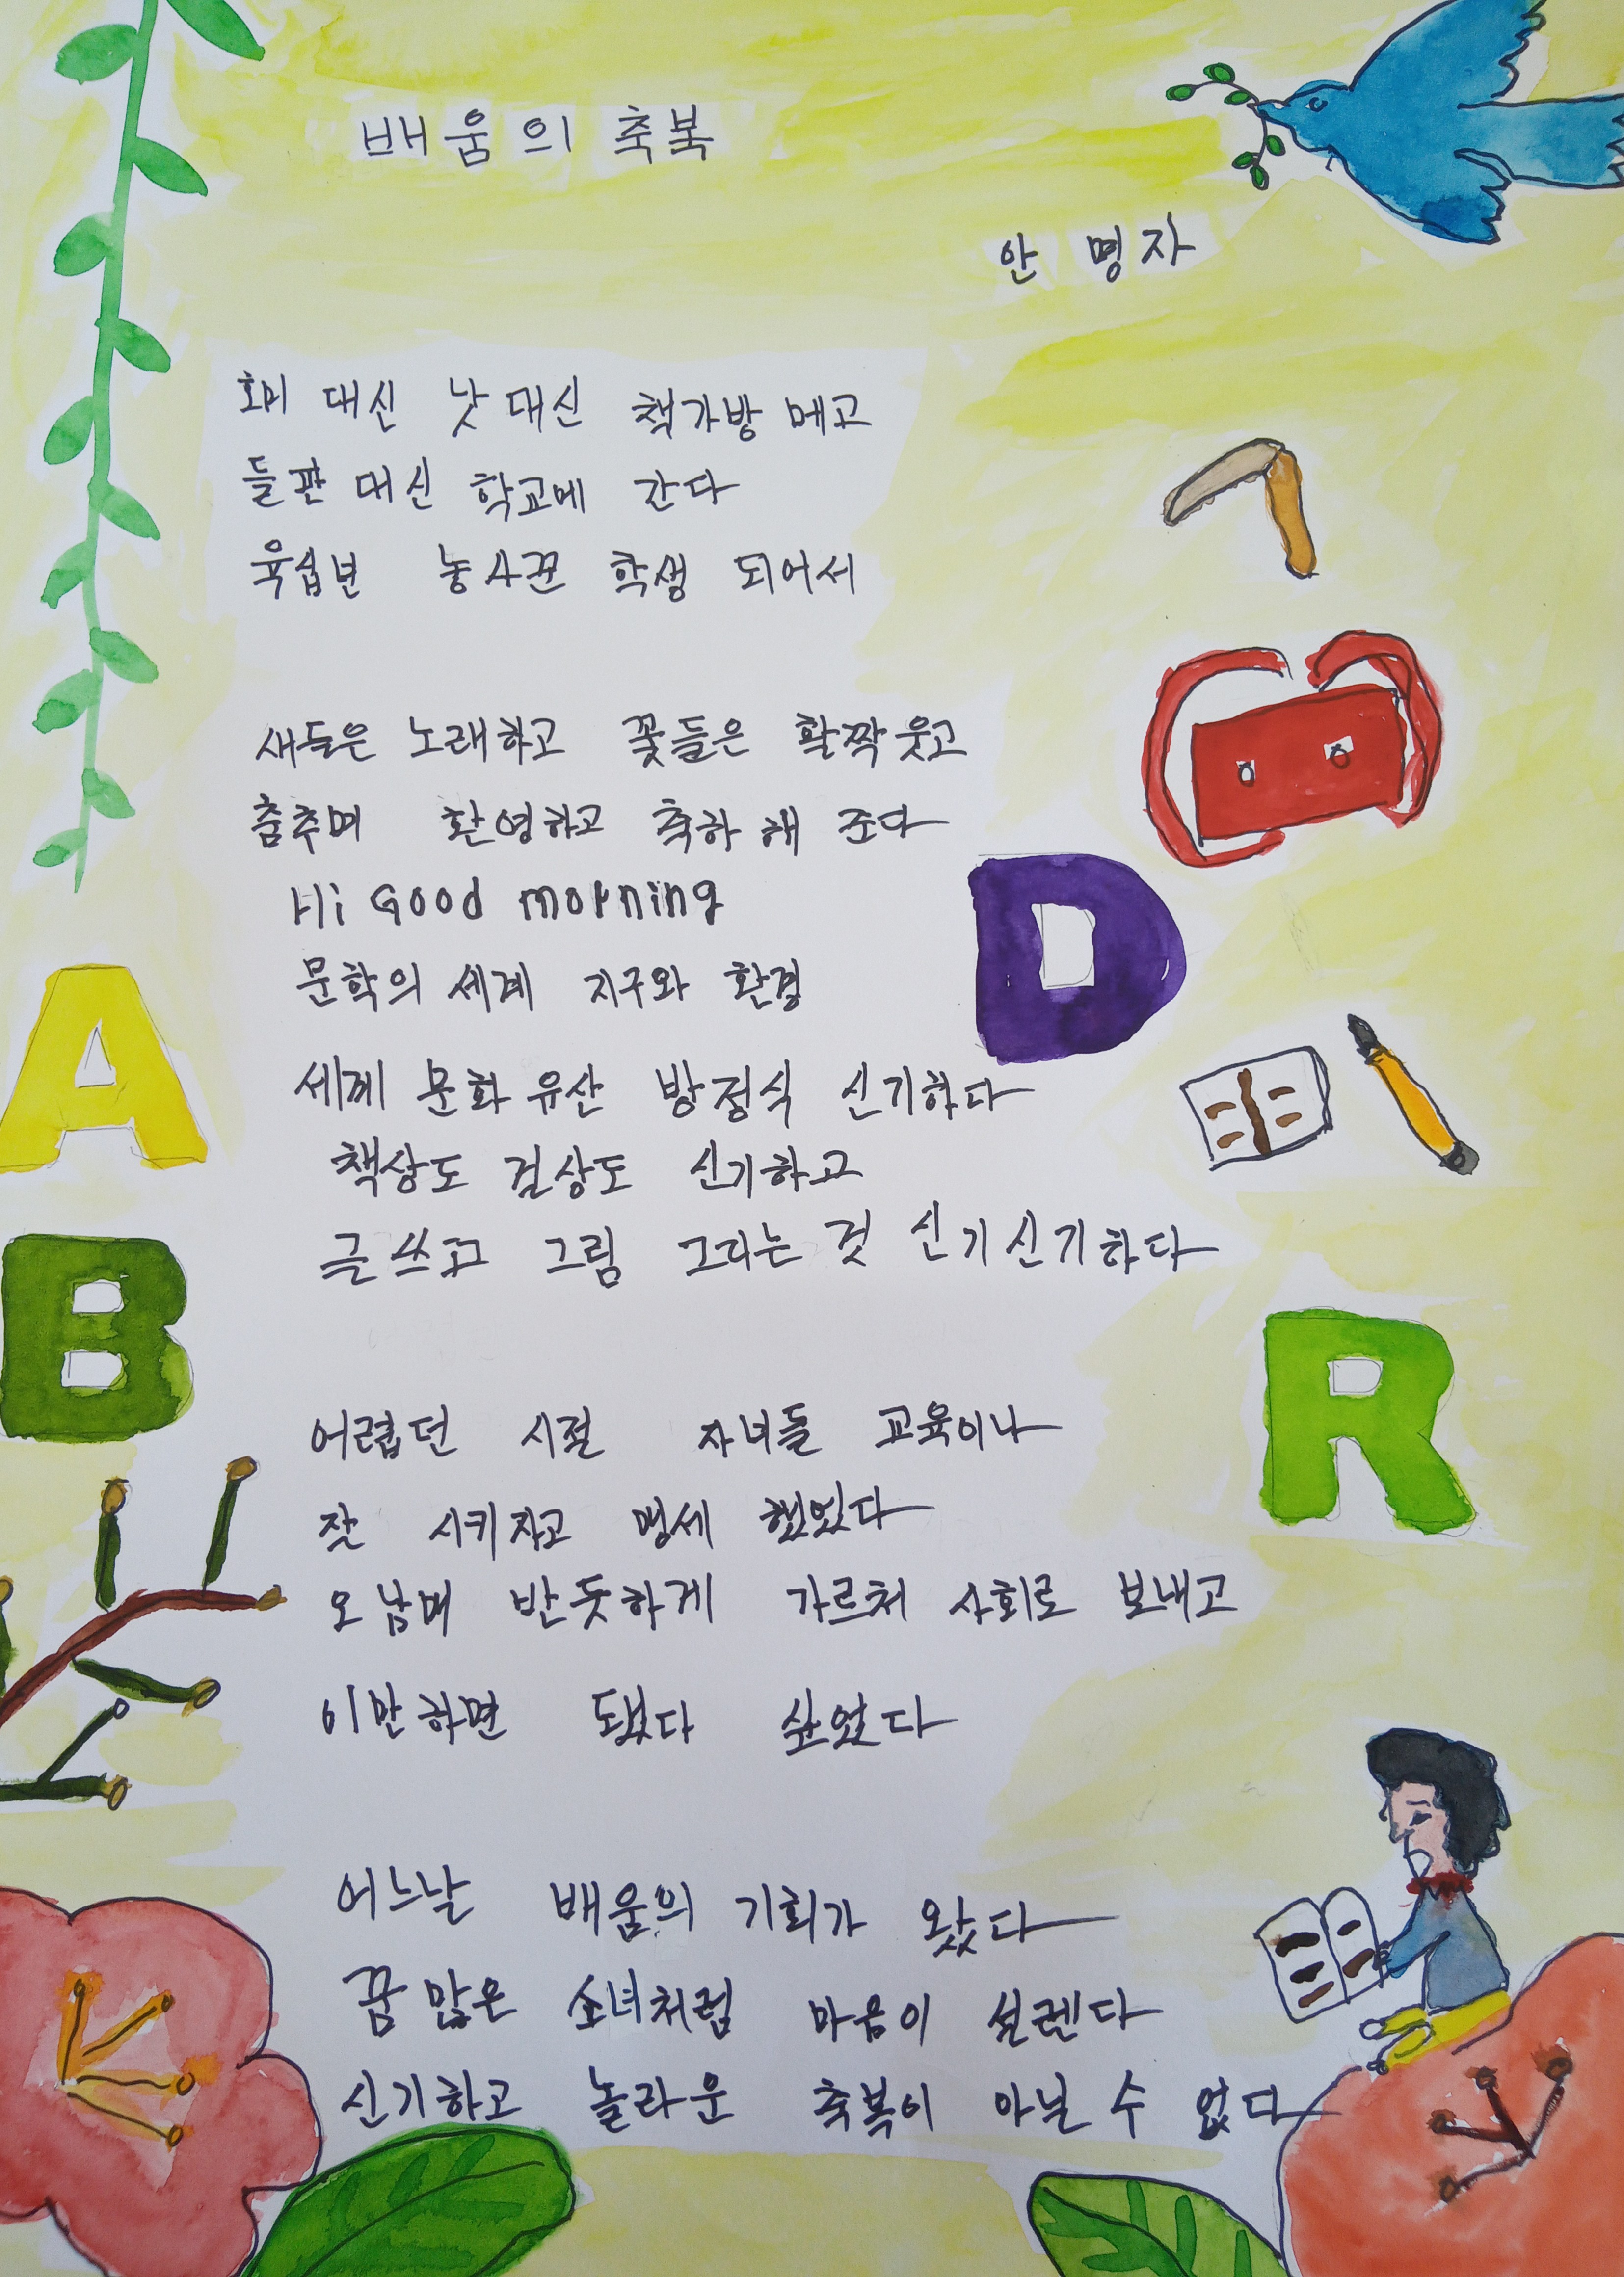 배움의 축복
안 명자
호미 대신 낫 대신 책가방 메고
들판 대신 학교에 간다
육십년 농사꾼 학생 되어서
새들은 노래하고 꽃들은 활짝 웃고
춤추며 환영하고 축하 해 준다
Hi Good morning
문학의 세계 지구와 환경
세계 문화 유산 방정식 신기하다
책상도 걸상도 신기하고
글 쓰고 그림 그리는 것 신기신기하다
어렵던 시절 자녀들 교육이나
잘 시키자고 맹세 했었다
오 남매 반듯하게 가르쳐 사회로 보내고
이만하면 됐다 싶었다
어느날 배움의 기회가 왔다
꿈 많은 소녀처럼 마음이 설렌다
신기하고 놀라운 축복이 아닐 수 없다
A
B
D
R